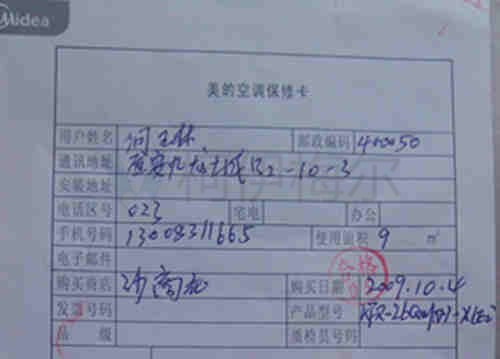 Midea
美的空调保修卡
用户姓名 何玉林 邮政编码 400050
通讯地址 B2-10-3
安装地址
电话区号 023 宅电 办公
手机号码 13008311665 使用面积 9 ㎡
电子邮件
购买商店 购买日期 2009.10.4
发票号码 产品型号
品级 质检员号码
合格